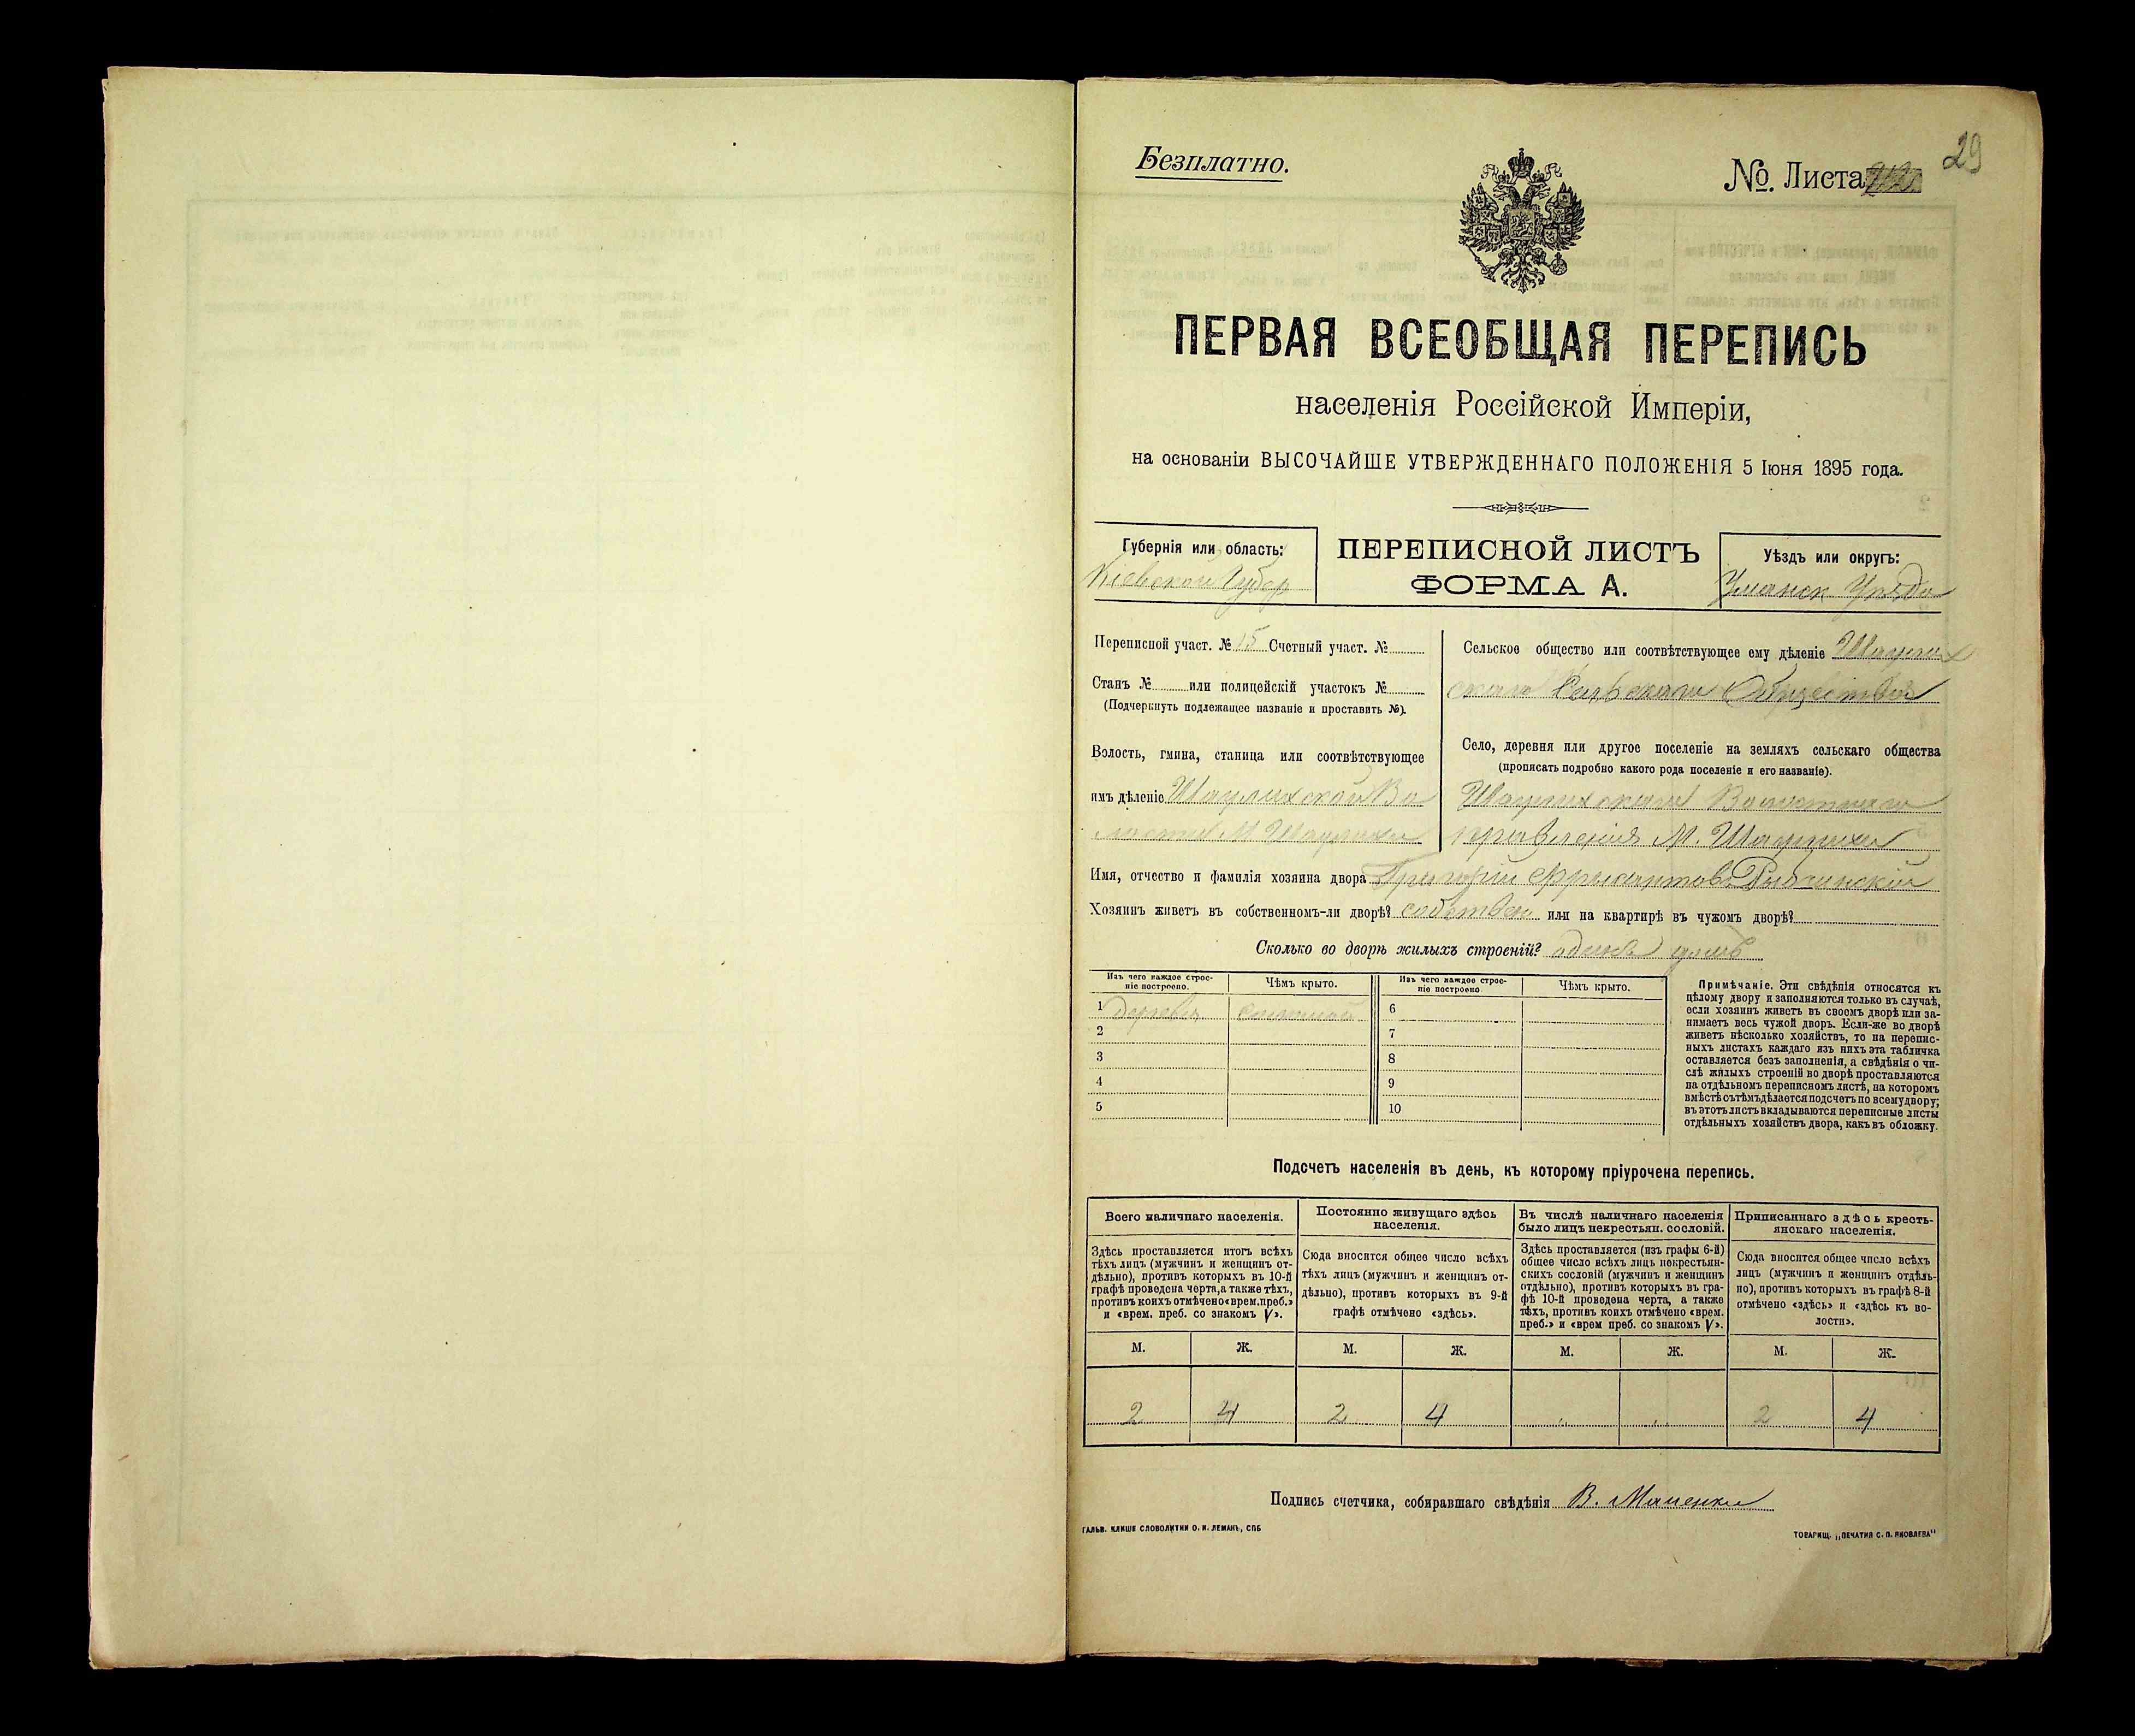 Безплатно.
№. Листа
29
ПЕРВАЯ ВСЕОБЩАЯ ПЕРЕПИСЬ
населенія Россійской Имперіи,
на основаніи ВЫСОЧАЙШЕ УТВЕРЖДЕННАГО ПОЛОЖЕНІЯ 5 Іюня 1895 года.
Губернія или область:
Кіевской Губер
ПЕРЕПИСНОЙ ЛИСТЪ
ФОРМА А.
Уѣздъ или округъ:
Уманск Уѣзда
Переписной участ. № 15 Счетный участ. №
Станъ № или полицейскій участокъ №
(Подчеркнуть подлежащее названіе и проставить №).
Волость, гмина, станица или соотвѣтствующее
имъ дѣленіе
Сельское общество или соотвѣтствующее ему дѣленіе
Сельскаго Общества
Село, деревня или другое поселеніе на земляхъ сельскаго общества
(прописать подробно какого рода поселеніе и его названіе).
Волостнаго
правленія М.
Имя, отчество и фамилія хозяина двора Григорій
Хозяинъ живетъ въ собственномъ-ли дворѣ? собствен или на квартирѣ въ чужомъ дворѣ?
Сколько во дворѣ жилыхъ строеній? одинъ домъ
Изъ чего каждое строе-
ніе построено.
Чѣмъ крыто.
Изъ чего каждое строе-
ніе построено
Чѣмъ крыто.
1 дерева соломой 6
2 7
3 8
4 9
5 10
Примѣчаніе. Эти свѣдѣнія относятся къ
цѣлому двору и заполняются только въ случаѣ,
если хозяинъ живетъ въ своемъ дворѣ или за-
нимаетъ весь чужой дворъ. Если-же во дворѣ
живетъ нѣсколько хозяйствъ, то на перепис-
ныхъ листахъ каждаго изъ нихъ эта табличка
оставляется безъ заполненія, а свѣдѣнія о чи-
слѣ жилыхъ строеній во дворѣ проставляются
на отдѣльномъ переписномъ листѣ, на которомъ
вмѣстѣ сътѣмъ дѣлается подсчетъ по всему двору;
въ этотъ листъ вкладываются переписные листы
отдѣльныхъ хозяйствъ двора, какъ въ обложку.
Подсчетъ населенія въ день, къ которому пріурочена перепись.
Всего наличнаго населенія.
Здѣсь проставляется итогъ всѣхъ
тѣхъ лицъ (мужчинъ и женщинъ от-
дѣльно), противъ которыхъ въ 10-й
графѣ проведена черта, а также тѣхъ,
противъ коихъ отмѣчено «врем. преб.»
и «врем. преб. со знакомъ V».
Постоянно живущаго здѣсь
населенія.
Сюда вносится общее число всѣхъ
тѣхъ лицъ (мужчинъ и женщинъ от-
дѣльно), противъ которыхъ въ 9-й
графѣ отмѣчено «здѣсь».
Въ числѣ наличнаго населенія
было лицъ некрестьян. сословій.
Здѣсь проставляется (изъ графы 6-й)
общее число всѣхъ лицъ некрестьян-
скихъ сословій (мужчинъ и женщинъ
отдѣльно), противъ которыхъ въ гра-
фѣ 10-й проведена черта, а также
тѣхъ, противъ коихъ отмѣчено «врем.
преб.» и «врем преб. со знакомъ V».
Приписаннаго здѣсь кресть-
янскаго населенія.
Сюда вносится общее число всѣхъ
лицъ (мужчинъ и женщинъ отдѣль-
но), противъ которыхъ въ графѣ 8-й
отмѣчено «здѣсь» и «здѣсь къ во-
лости».
М. Ж. М. Ж. М. Ж. М. Ж.
2 4 2 4 „ „ 2 4
Подпись счетчика, собиравшаго свѣдѣнія В.
ГАЛЬВ. КЛИШЕ СЛОВОЛИТНИ О. И. ЛЕМАНЪ, СПБ
ТОВАРИЩ. „ПЕЧАТНЯ С. П. ЯКОВЛЕВА"